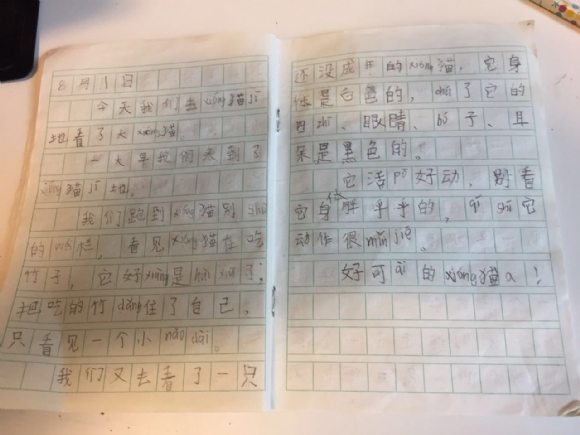 8月1日
今天我们去xióng猫jī
地看了大xióng猫
一大早我们来到了
xióng猫jī地。
我们跑到xióng猫别shù
的 看见xióng猫在吃
竹子,它好xiàng是hài xiū了,
把吃的竹dǎng住了自己,
只看见一个小nǎo dài。
我们又去看了一只
还没成年的xióng猫,它身
体是白色的,chú了它的
四zhī、眼睛、bí子、耳
朵是黑色的。
它活pō好动,别看
它身体胖乎乎的,qí shí它
动作很mǐn jié。
好可ài的xióng猫a!